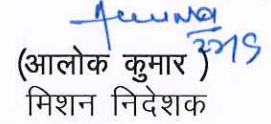 (आलोक कुमार )
मिशन निदेशक